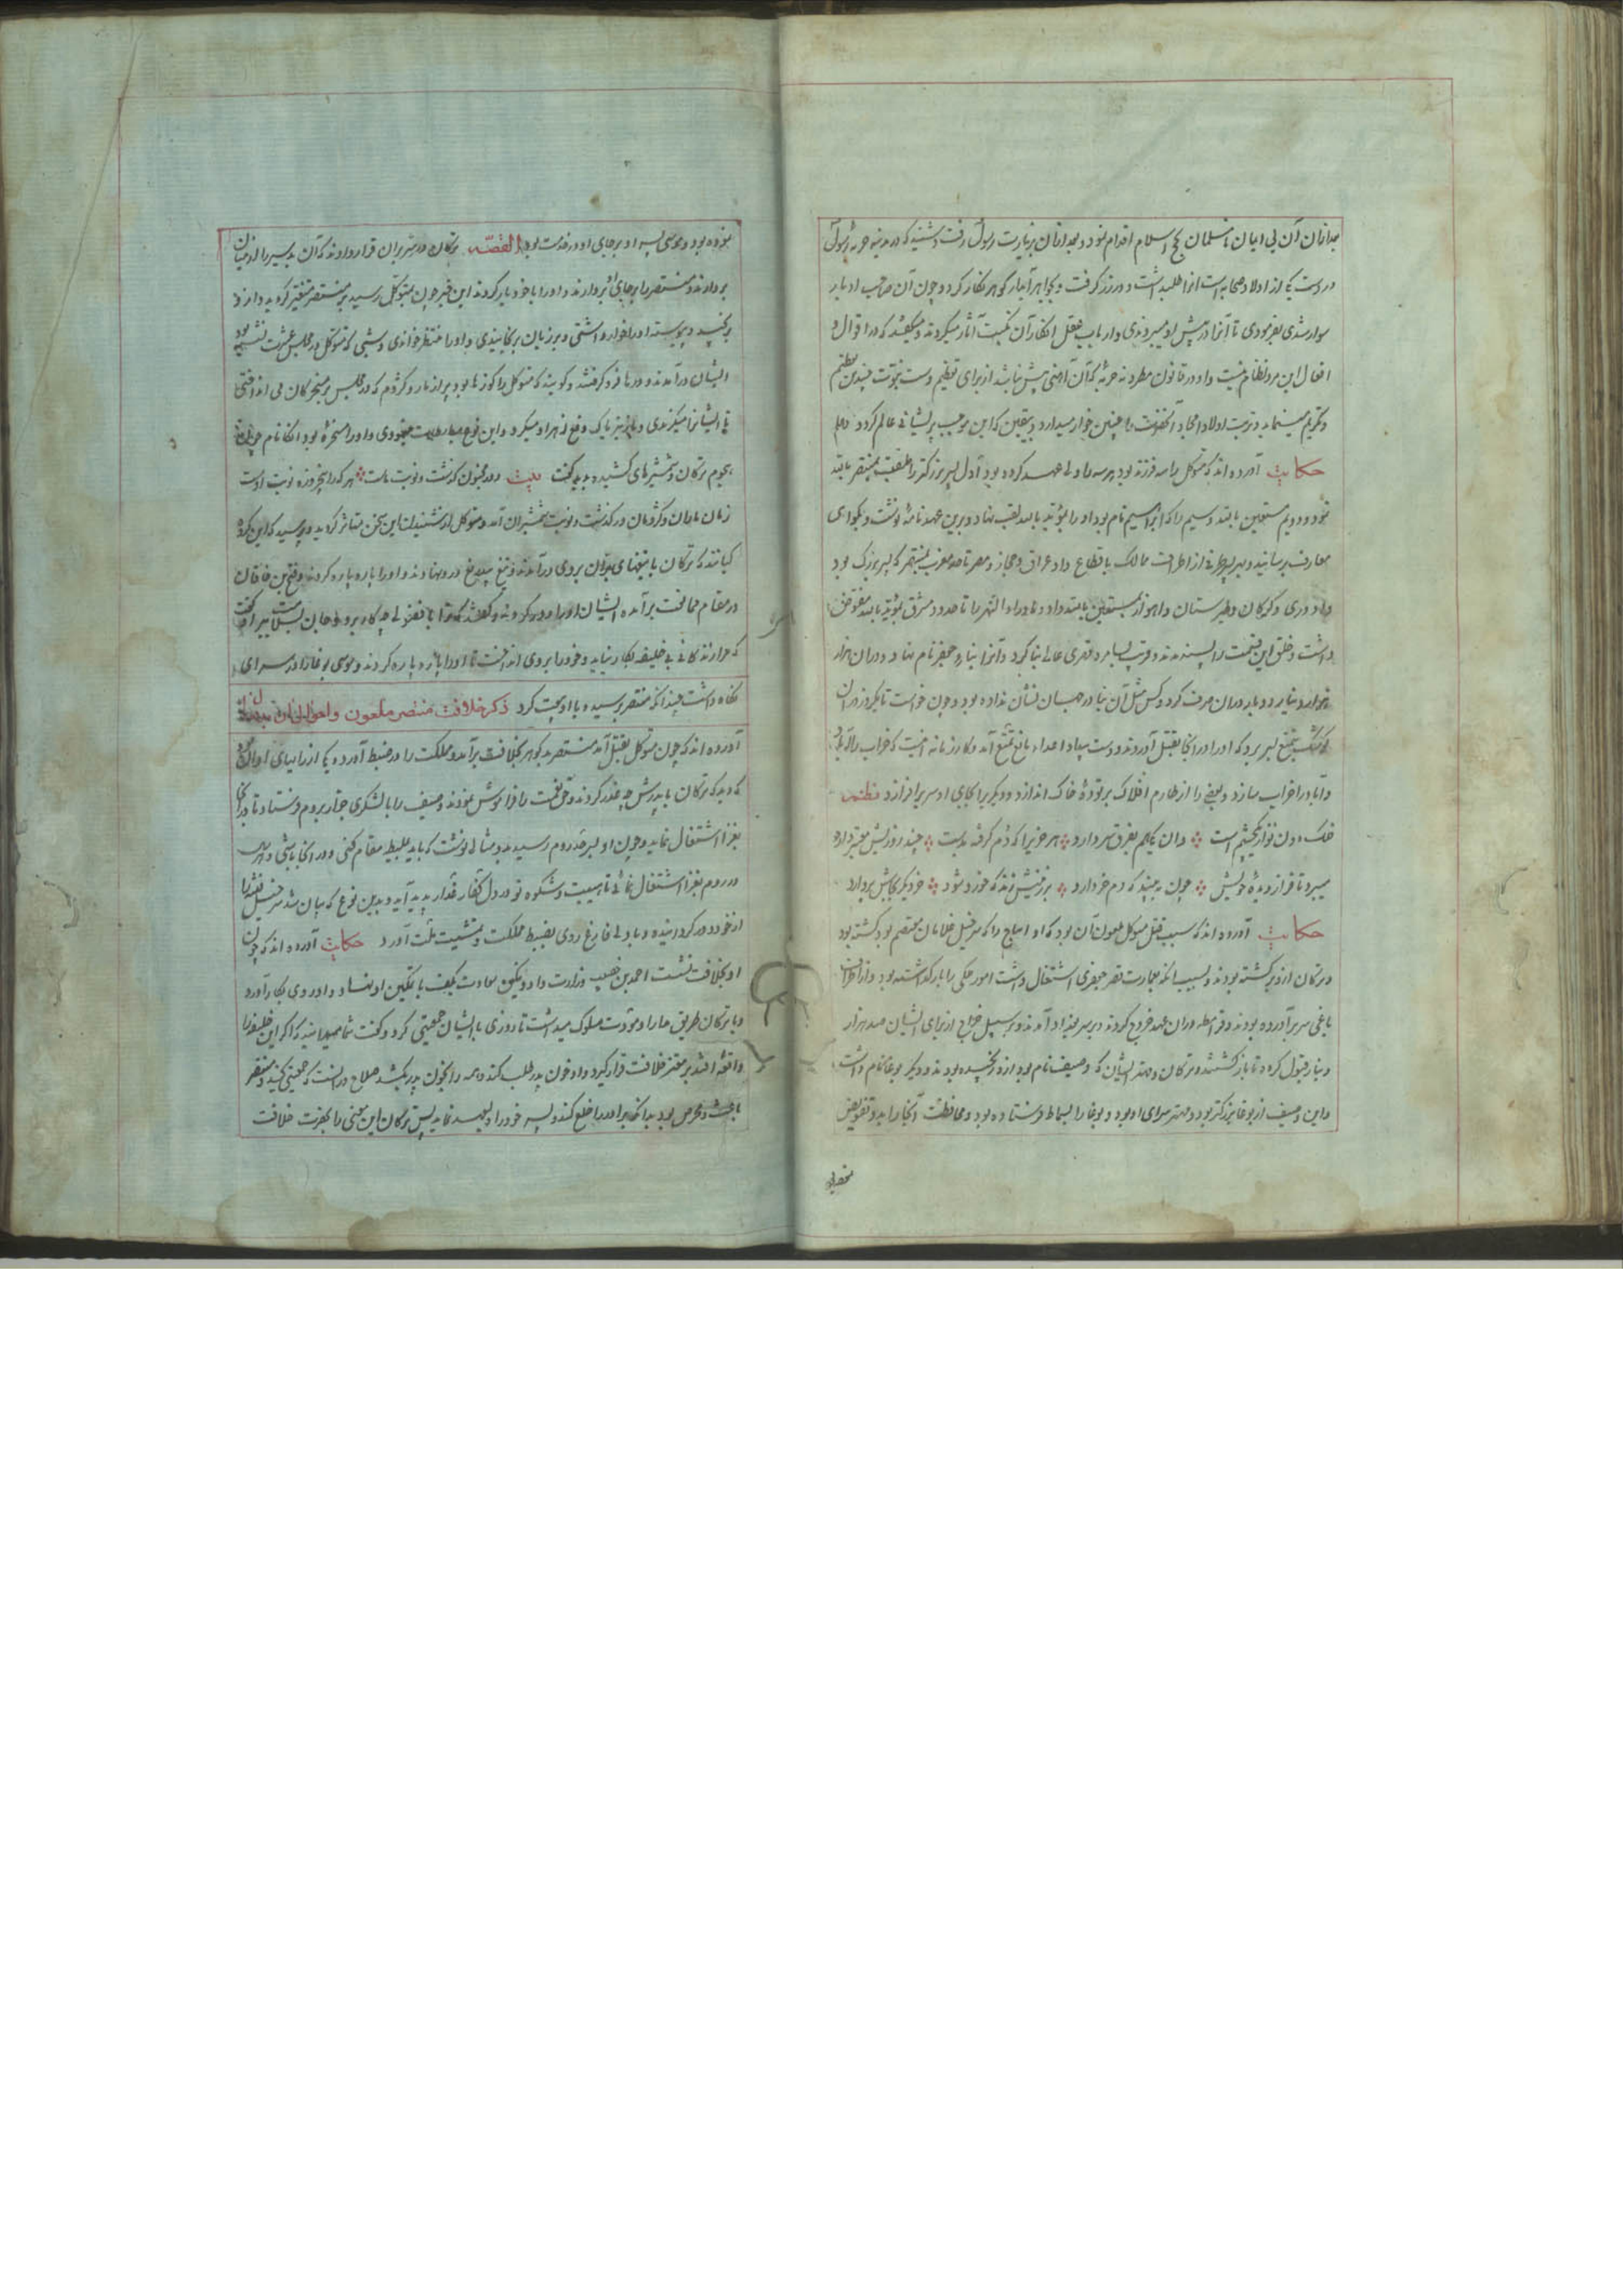 بعد ازان آن بی ایمان نامسلمان بحج اسلام اقدام نمود و بعد ازان بزیارت رسول رفت و شنید که در مدینه حربهٔ رسول
در دست یکی از اولاد صحابه است آنرا طلب داشت و در زر گرفت و بجواهر آبدار گوهر نگار کرد و چون آن صاحب ادبار
سوار شدی بفرمودی تا آنرا در پیش او میبردندی و ارباب عقل انکار آن میکردند و میگفتند که در اقوال و
افعال این مرد نظام نیست و او در قانون حربهٔ که آن آهنی بیش نباشد از برای تعظیم دست نبوت چندین تعظیم
و تکریم مینماید و تربت اولاد و امجاد آنحضرت را چنین خوار میدارد و بیقین که این موجب پریشانی عالم گردد
حکایت آورده اند که متوکل را سه فرزند بود هر سه را ولی عهد کرده بود اول پسر بزرگتر را ملقب بمنتصر بالله
نمود و دویم مستعین بالله و سیم را که ابراهیم نام بود او را مؤید بالله لقب نهاد و برین عهدنامهٔ نوشت و بگواهی
معارف رسانید و بهر پسر طرفی از اطراف ممالک باقطاع داد عراق و حجاز و مصر تا حد مغرب بمنتصر که پسر بزرگ بود
داد و ری و کرکان و طبرستان و اهواز بمستعین بالله داد و ماوراء النهر را تا حدود مشرق بمؤید بالله مفوض
داشت و خلق این قسمت را پسندیدند و قریب بسامره قصری عالی بنا کرد و آنرا بناء جعفر نام نهاد و دوران هزار
هزار دینار در دوران صرف کرد و کس مثل آن بنا در جهان نشان نداده بود و چون خواست تا یکروز در آن
کوشک بتمتع بسر برد که او را در آنجا بقتل آوردند و دست بیداد اعداء مانع تمتع آمد و کار زمانه اینست که خراب را آباد
و آباد را خراب سازد و یکی را از طارم افلاک بر تودهٔ خاک اندازد و دیگریرا بجای او سر برافرازد نظم
فلک دون نواز یکچشم است وان یکی هم بفرق سر دارد هر خریرا که دم گرفت بدست چند روزیش معتبر دارد
میبرد تا فراز دیدهٔ خویش چون ببیند که دم خر دارد بر زمینش زند که خورد شود خر دیگر بجاش بردارد
حکایت آورده اند که سبب قتل متوکل ملعون آن بود که او ایتاج را که سرخیل غلامان معتصم بود کشته بود
و ترکان ازو برگشته بودند و بسبب آنکه بعمارت قصر جعفری اشتغال داشت امور ملکی را باز گذاشته بود و از اطراف
باغی سر برآورده بودند و قرامطه دران عهد خروج کردند و بر سر بغداد آمدند و بر سبیل خراج از برای ایشان صد هزار
دینار قبول کرد تا باز گشتند و ترکان و مهتر ایشان که وصیف نام بود ازو رنجیده بودند و دیگر بوغا نام داشت
و این وصیف از بوغا بزرگتر بود و مهتر سرای او بود و بوغا را بسماط فرستاده بود و محافظت آنجا را بدو تفویض
نموده بود و موسی پسر او بر جای او در خدمت بود القصه ترکان در سر بران قرار دادند که آن پدر را از میان
بردارند و منتصر را بر جای او بردارند و او را با خود یار کردند این خبر چون بمتوکل رسید بر منتصر متغیر گردید و ازو
برنجید و پیوسته او را خوار داشتی و بر زبان برنجانیدی و او را منتظر خواندی و شبی که متوکل در مجلس عشرت نشسته بود
ایشان درآمدند و او را فرو گرفتند و گویند که متوکل را کوزها بود پر از مار و کژدم که در مجلس بر مسخرگان می انداختی
تا ایشانرا میگزیدی و باز بتریاک دفع زهر او میکرد و این نوع
هجوم ترکان و شمشیرهای کشیده بدید گفت بیت دور مجنون گذشت و نوبت ماست هر که را پنجروزه نوبت اوست
زمان ماران و کژدمان در گذشت و نوبت شمشیران آمد و متوکل از شنیدن این سخن متاثر گردید و پرسید که این
ترکان با تیغهای بران بروی درآمدند و تیغ بیدریغ درو نهادند و او را پاره پاره کردند و فتح بن خاقان
در مقام ممانعت برآمده ایشان او را دور کردند و گفتند که ترا با فضولی چه کار برو و جان بسلامت ببر او گفت
که مرا زندگانی بی خلیفه بکار نیاید و خود را بروی انداخت تا او را پاره پاره کردند و موسی بوغا را در سرای
نگاه داشت چندانکه منتصر برسید و با او بیعت کرد ذکر خلافت منتصر ملعون و احوال ان
آورده اند که چون متوکل بقتل آمد منتصر بخلافت برآمد و مملکت را در ضبط آورد
که دید که ترکان با پدرش چه غدر کردند و حق نعمت را فراموش نمودند وصیف را با لشکری جرار بروم فرستاد تا در آنجا
بغزا اشتغال نماید و چون او بسرحد روم رسید بدو مثالی نوشت که باید مقام کنی و در آنجا باشی
در روم بغزا اشتغال نمائی تا هیبت و شکوه تو در دل کفار پدید آید و بدین نوع که بیان شد سرخیل فتنه را
از خود دور گردانیده و با دلی فارغ روی بضبط مملکت و مشیت ملت آورد حکایت آورده اند که چون
او بخلافت نشست احمد بن خصیب وزارت داد و
و با ترکان طریق مدارا و مودت سلوک میداشت تا روزی با ایشان جمعیتی کرد و گفت شما میدانید که اگر این خلیفه را
واقعهٔ افتد بر معتز خلافت قرار گیرد و او خون پدر طلب کند و همه را بخون پدر بکشد صلاح در آنست که جمعیتی کنید و منتصر
باعث و محرض بود بدانکه برادر را خلع کند و پسر خود را ولیعهد نماید پس ترکان این معنی را بحضرت خلافت